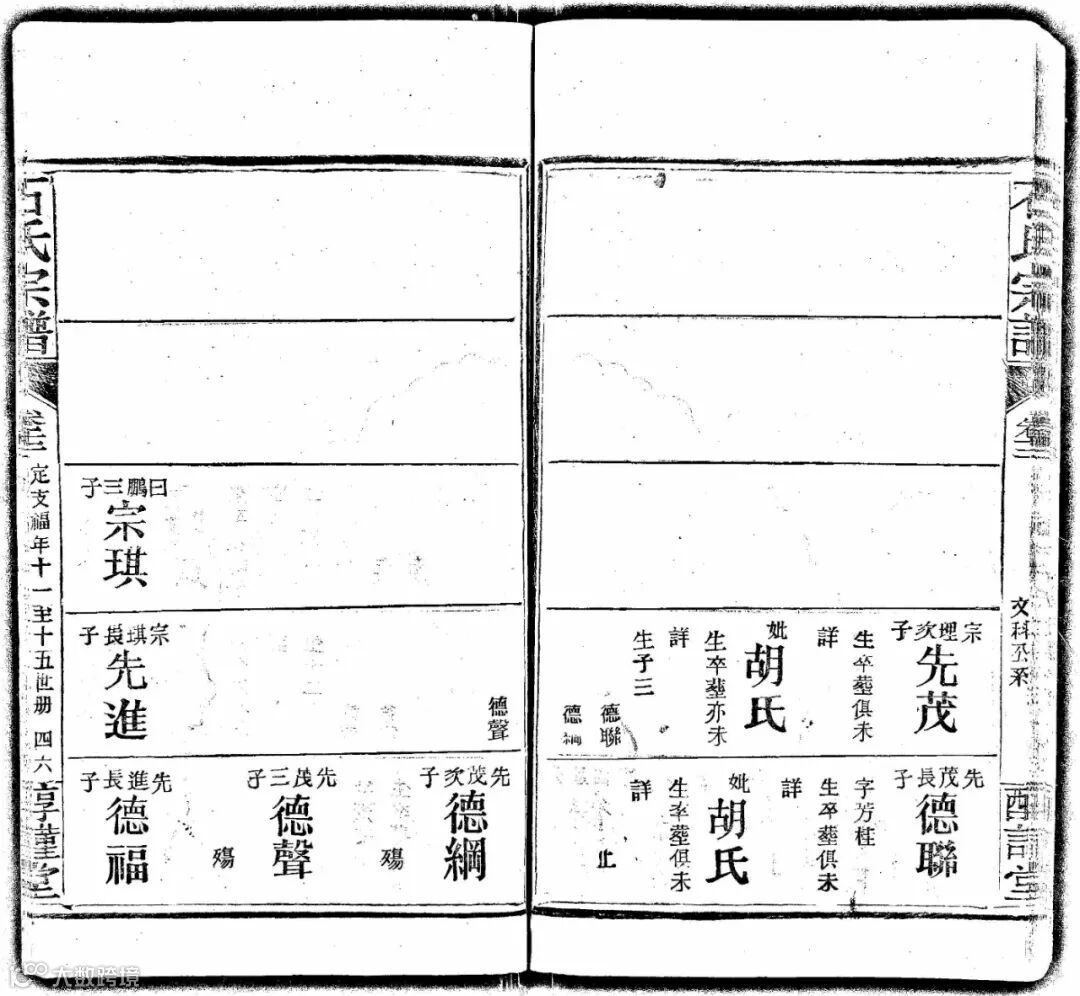 石氏宗譜
文科公系
宗理次子
先茂
生卒塟俱未
詳
妣
胡氏
生卒塟亦未
詳
生子三
德聯
德綱
先茂長子
德聯
字芳桂
生卒塟俱未
詳
妣
胡氏
生卒塟俱未
詳
止
曰鵬三子
宗琪
德聲
宗琪長子
先進
先茂次子
德綱
殤
先茂三子
德聲
殤
先進長子
德福
石氏宗譜
定支福年十一至十五世册 四六
大数跨境